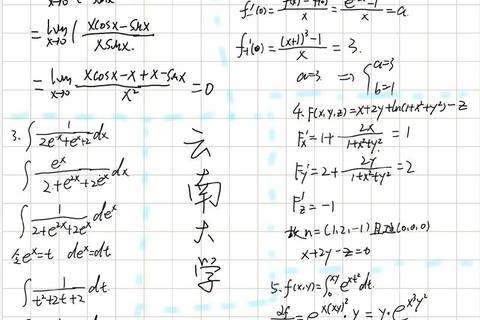 = lim x→0 ( xcosx-sinx / xsinx
= lim x→0 xcosx-x+x-sinx / x² = 0
3. ∫ 1/(2e⁻ˣ+eˣ+2) dx
∫ eˣ/(2+e²ˣ+2eˣ) dx
∫ 1/(2+e²ˣ+2eˣ) deˣ
令eˣ=t deˣ=dt
∫ 1/(t²+2t+2) dt
云南大学
f₋'(0)= f(x)-f(0) / x = eᵃˣ-1 / x = a
f₊'(0)= (x+1)³-1 / x = 3.
a=3 ⇒ { a=3 b=1
4. F(x,y,z)=x+2y+ln(1+x²+y²)-z
Fx'=1+ 2x/(1+x²+y²) = 1
Fy'=2+ 2y/(1+x²+y²) = 2
Fz'=-1
故n=(1,2,-1)且过(0,0,0)
x+2y-z=0
5. f(x,y)=∫₀ˣʸ e^(xt²) dt.
∂f = e^(x(xy)²)·y = y·e^(x³y²)